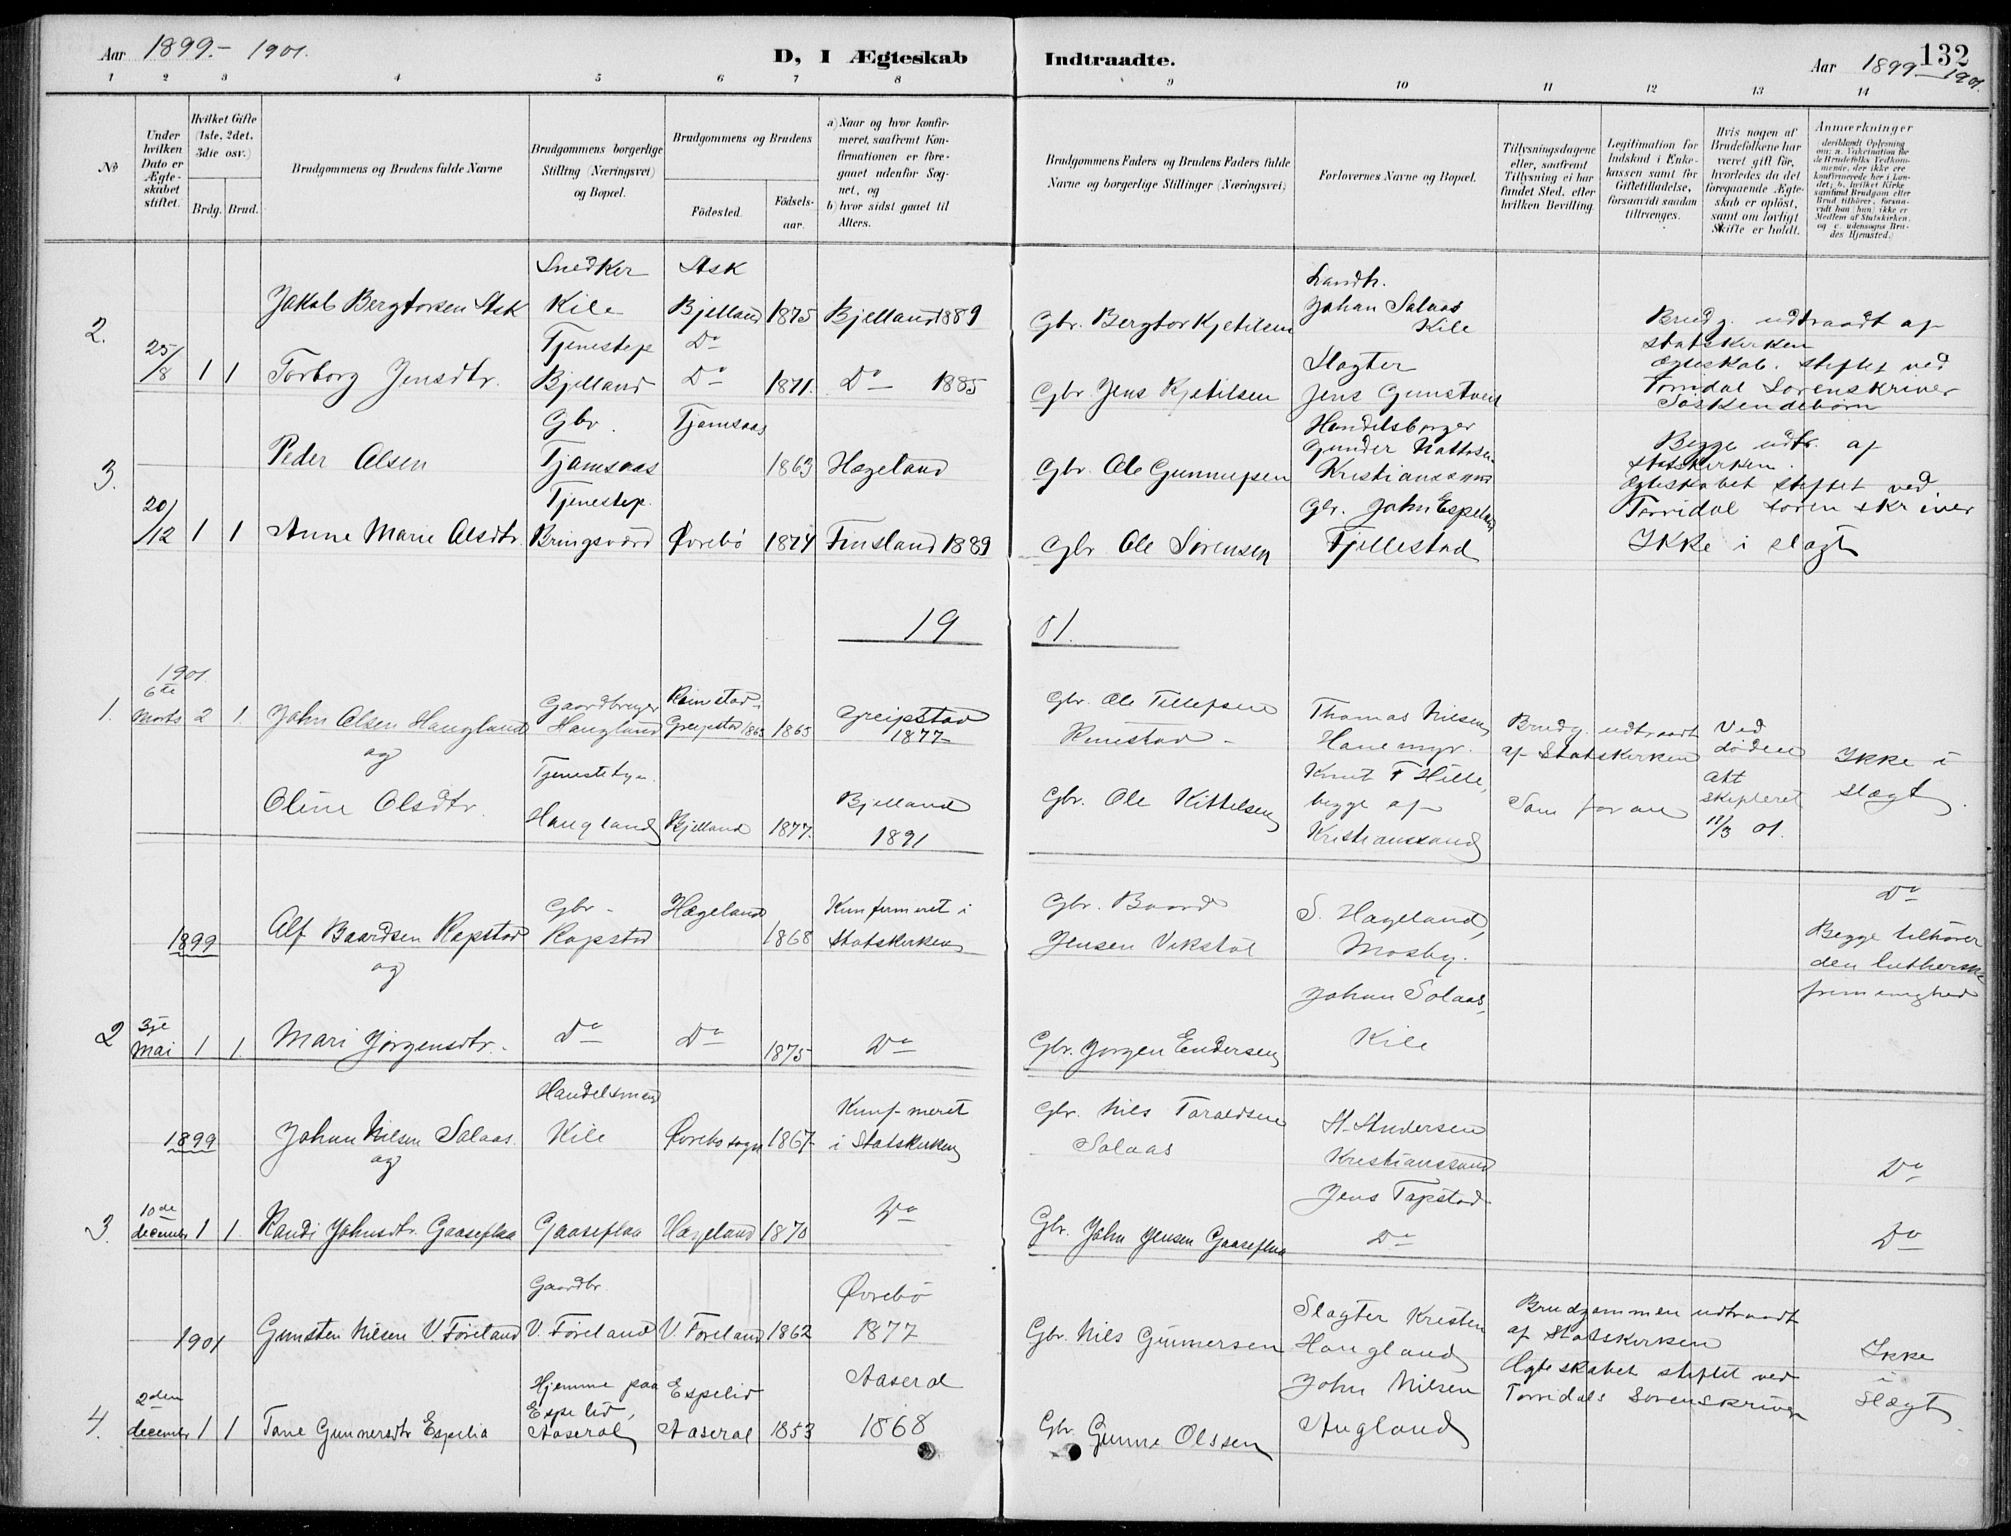 Aar 1899.- 1901.
D, I Ægteskab Indtraadte.
Aar 1899 - 1901.
132
1 2 3 4 5 6 7 8 9 10 11 12 13 14
No
Under hvilken Dato er Ægteskabet stiftet.
Hvilket Gifte (1ste, 2det, 3die osv.)
Brdg. Brud.
Brudgommens og Brudens fulde Navne
Brudgommens borgerlige Stilling (Næringsvei) og Bopæl.
Brudgommens og Brudens
Fødested.
Fødselsaar.
a) Naar og hvor konfirmeret, saafremt Konfirmationen er foregaaet udenfor Sognet, og
b) hvor sidst gaaet til Alters.
Brudgommens Faders og Brudens Faders fulde Navne og borgerlige Stillinger (Næringsvei)
Forlovernes Navne og Bopæl.
Tillysningsdagene eller, saafremt Tillysning ei har fundet Sted, efter hvilken Bevilling
Legitimation for Indskud i Enkekassen samt for Giftetilladelse, forsaavidt saadan tiltrænges.
Hvis nogen af Brudefolkene har været gift før, hvorledes da det foregaaende Ægteskab er opløst, samt om lovligt Skifte er holdt.
Anmærkninger
deriblandt Oplysning om: a. Vakcination for de Brudefolks Vedkommende, der ikke ere konfirmerede her i Landet; b. hvilket Kirkesamfund Brudgom eller Brud tilhører, forsaavidt han (hun) ikke er Medlem af Statskirken, og c. udensogns Brudes Hjemsted.
Snedker Ask Landh.
2. Jakob Bergtorsen Ask Kile Bjelland 1875 Bjelland 1889 Gbr. Bergtor Kjetilsen Johan Salaas Kile Brudg. udtraadt af statskirken
25/8 1 1 Torborg Jensdtr. Tjenestep Bjelland Do Do 1871. Do 1885 Gbr Jens Kjetilsen Slagter Jens Ægteskab. stiftet ved Torridal Sorenskriver
Søskendebørn
3. Peder Olsen Gbr. Tjomsaas Tjomsaas 1863 Hægeland Gbr. Ole Handelsborger Gunder Kristianssand Begge udtr. af statskirken.
20/12 1 1 Anne Marie Olsdtr. Tjenestep. Bringsværd Øvrebø 1874 Finsland 1889 Gbr Ole Sørensen Gbr. John Espeland Fjellestad Ægteskabet stiftet ved Torridal sorenskriver
Ikke i slagt
19 01.
1901
1. 6te Marts 2 1. John Olsen Haugland Gaardbruger Haugland Greipstad 1865 1865 Greipstad 1877 Gbr Ole Tellefsen Thomas Nilsen Hanemyr. Brudg. udtraadt af Statskirken Ved døden
og
Oline Olsdtr. Haugland Bjelland 1877. Bjelland 1891 Gbr. Ole Kittelsen Knut T Hille, begge af Kristianssand Som foran skifteret 11/3 01. Ikke i slagt.
1899 Alf Baardsen Rapstad Gbr Rapstad Hægeland 1868 Konfirmeret i Statskirken Gbr. Baard Jensen Vikstøl S. Hægeland, Mosby. Do
og
Begge tilhører den lutherske frimenighed
2 3je Mai 1 1. Mari Jørgensdtr. Do Do 1875 Do Gbr. Jørgen Endersen Johan Salaas, Kile
1899 Johan Nilsen Salaas. Handelsmand Kile Øvrebø sogn 1867 i Statskirken Gbr. Nils Taraldsen Salaas Andersen Kristianssand Do
og
3. 10de december 1 1. Randi Johnsdtr. Gaaseflaa Gaaseflaa Hægeland 1870 Do Gbr. John Jensen Gaaseflaa Jens Do Do
1901 Gunsten Nilsen V. Føreland Gaardbr. V. Føreland V. Føreland 1862 Øvrebø 1877 Gbr. Nils Gunnersen Slagter Kristen Haugland Brudgommen udtraadt af Statskirken
4. 2den december 1 1 Tone Gunnersdtr Espelia Hjemme paa Espelid, Aaseral Espelid Aaseral 1853 Aaseral 1868 Gbr. Gunne Olssen John Nilsen Augland Ægteskabet stiftet ved Torridals Sorenskriver Ikke i slægt